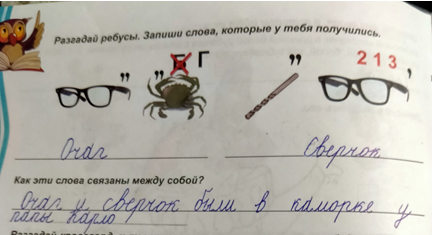 Разгадай ребусы. Запиши слова, которые у тебя получились.
,, ,, Б Г ,, 2 1 3 ,
Очаг Сверчок
Как эти слова связаны между собой?
Очаг и сверчок были в каморке у
папы Карло